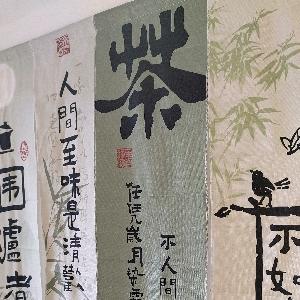 圍爐
人間至味是清歡
茶
不人間
任凭歲月染
不如